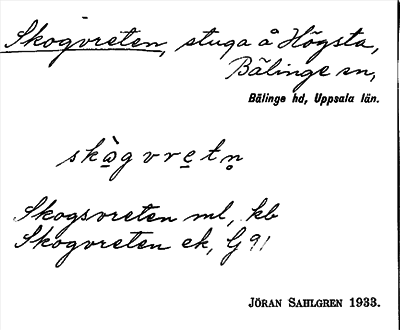 Skogvreten, stuga å Högsta,
Bälinge sn,
Bälinge hd, Uppsala län.
skò̱gvre̱tn̥
Skogsvreten ml, kb
Skogvreten ek, G 91
JÖRAN SAHLGREN 1933.